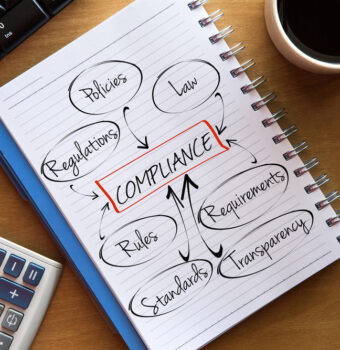 Policies
Law
Regulations
COMPLIANCE
Requirements
Rules
Transparency
Standards